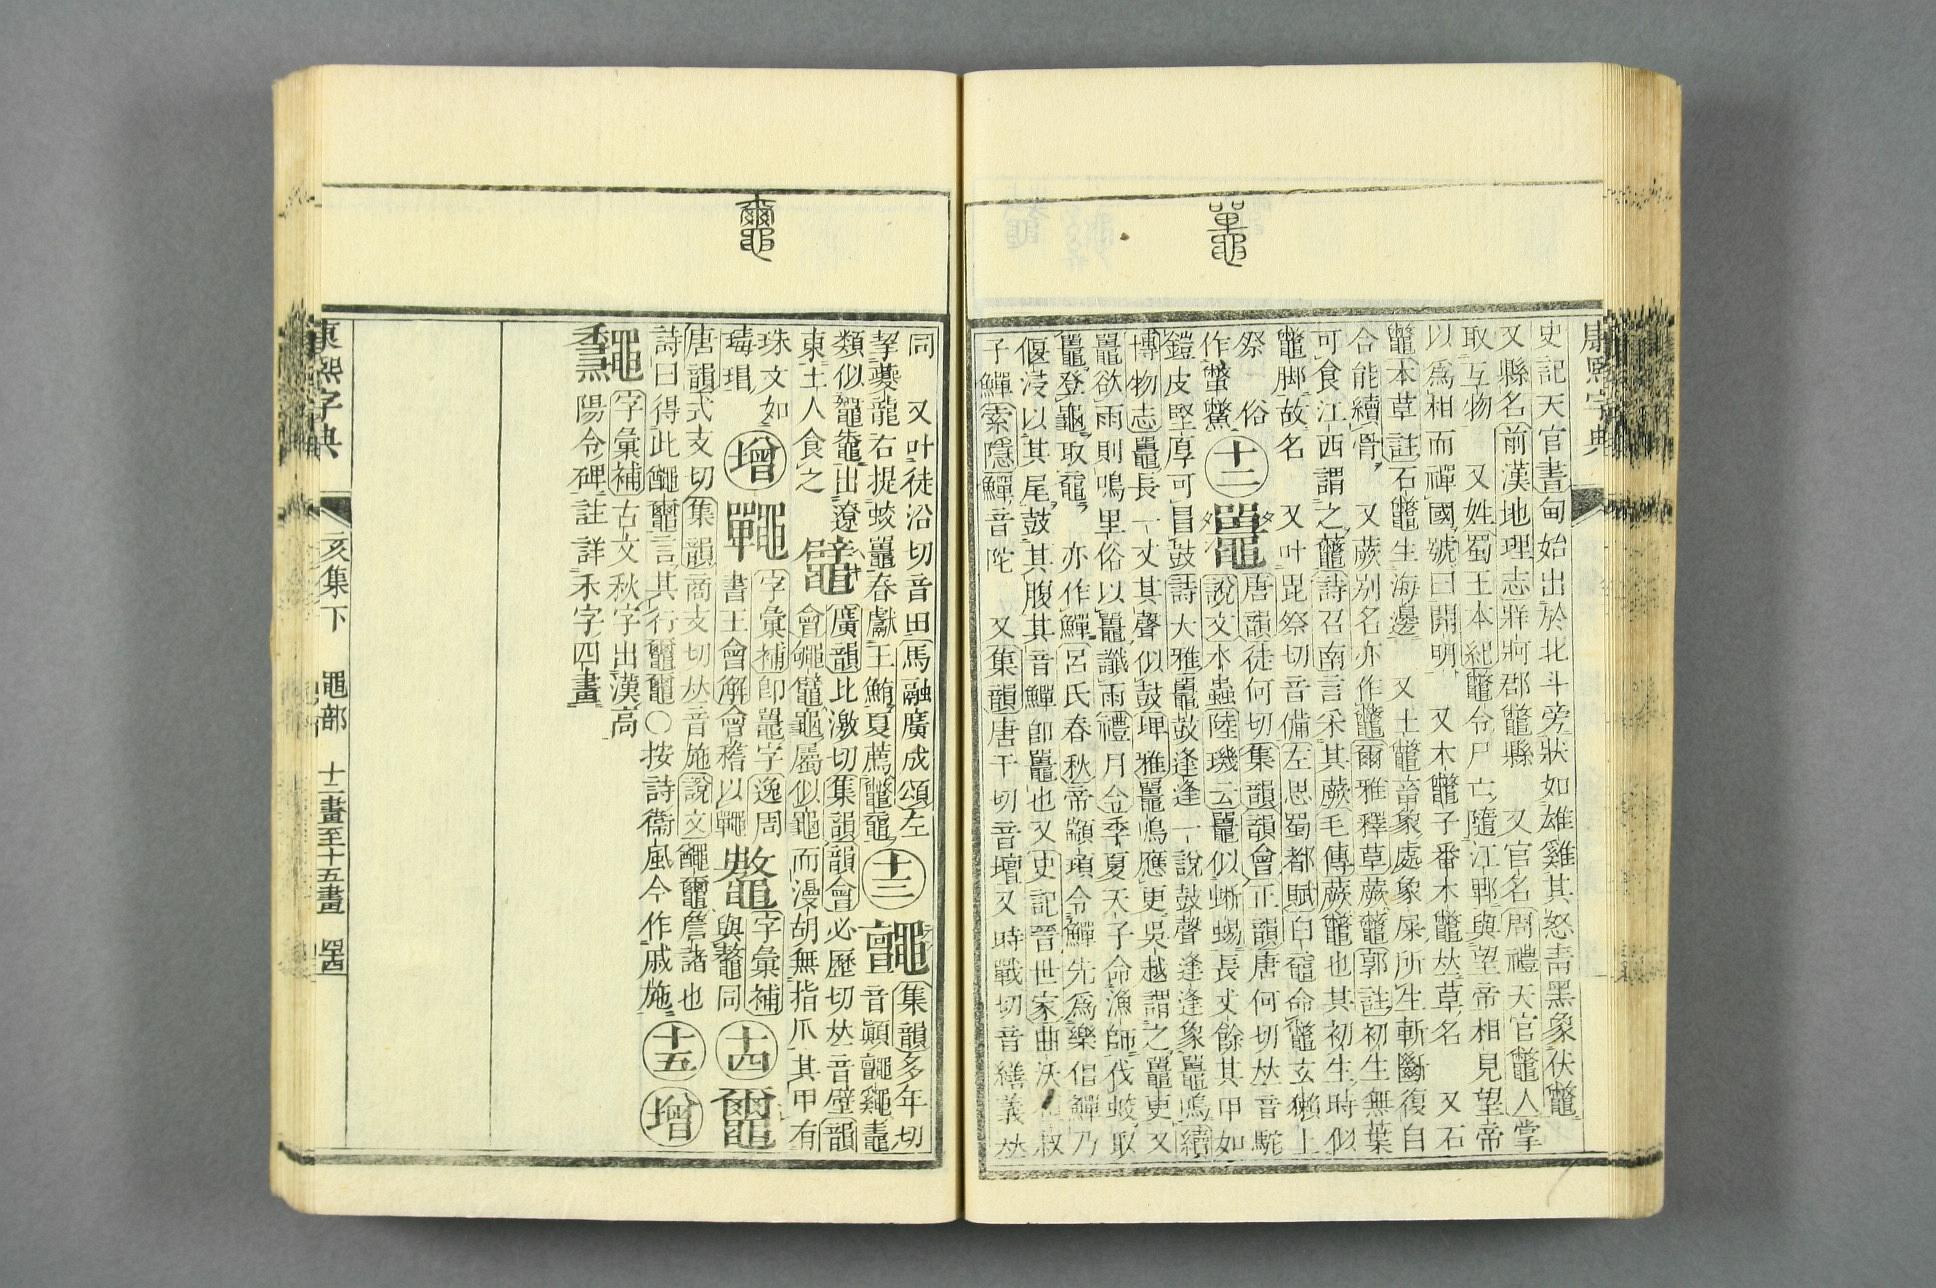 康熙字典
鼉
史記天官書旬始出於北斗旁狀如雄雞其怒靑黑象伏鼈
又縣名前漢地理志牂牁郡鼈縣 又官名周禮天官鼈人掌
取互物 又姓蜀王本紀鼈令尸亡隨江郫與望帝相見望帝
以爲相而禪國號曰開明 又木鼈子番木鼈𠀤草名 又石
鼈本草註石鼈生海邊 又土鼈畜象處象屎所生斬斷復自
合能續骨 又蕨別名亦作虌爾雅釋草蕨虌郭註初生無葉
可食江西謂之虌詩召南言采其蕨毛傳蕨虌也其初生時似
鼈脚故名 又叶毘祭切音備左思蜀都賦白黿命鼈玄獺上
祭 俗作蟞 十二 鼉 唐韻徒何切集韻韻會正韻唐何切𠀤音駝
說文水蟲陸璣云鼉似蜥蜴長丈餘其甲如
鎧皮堅厚可冒鼓詩大雅鼉鼓逢逢一說鼓聲逢逢象鼉鳴續
博物志鼉長一丈其聲似鼓埤雅鼉鳴應更吳越謂之鼉更又
鼉欲雨則鳴里俗以鼉讖雨禮月令季夏天子命漁師伐蛟取
鼉登龜取黿 亦作鱓呂氏春秋帝顓頊令鱓先爲樂倡鱓乃
偃浸以其尾鼓其腹其音鱓卽鼉也又史記晉世家曲沃叔
子鱓索隱鱓音陀 又集韻唐干切音壇又時戰切音繕義𠀤
同 又叶徒沿切音田馬融廣成頌左
挈夔龍右提蛟鼉春獻王鮪夏薦鼈黿 十三 集韻多年切
音顚
類似鼊出遼
東土人食之 鼊 廣韻比激切集韻韻會必歷切𠀤音壁韻
會鼊龜屬似龜而漫胡無指爪其甲有
珠文如
瑇瑁 增 字彙補卽鼉字逸周
書王會解會稽以 鼇 字彙補
與鼇同 十四 鼉
唐韻式支切集韻商支切𠀤音施說文詹諸也
詩曰得此言其行〇按詩衞風今作戚施 十五 增
字彙補古文秋字出漢高
陽令碑註詳禾字四畫
康熙字典 亥集下 黽部 十二畫至十五畫 四十四